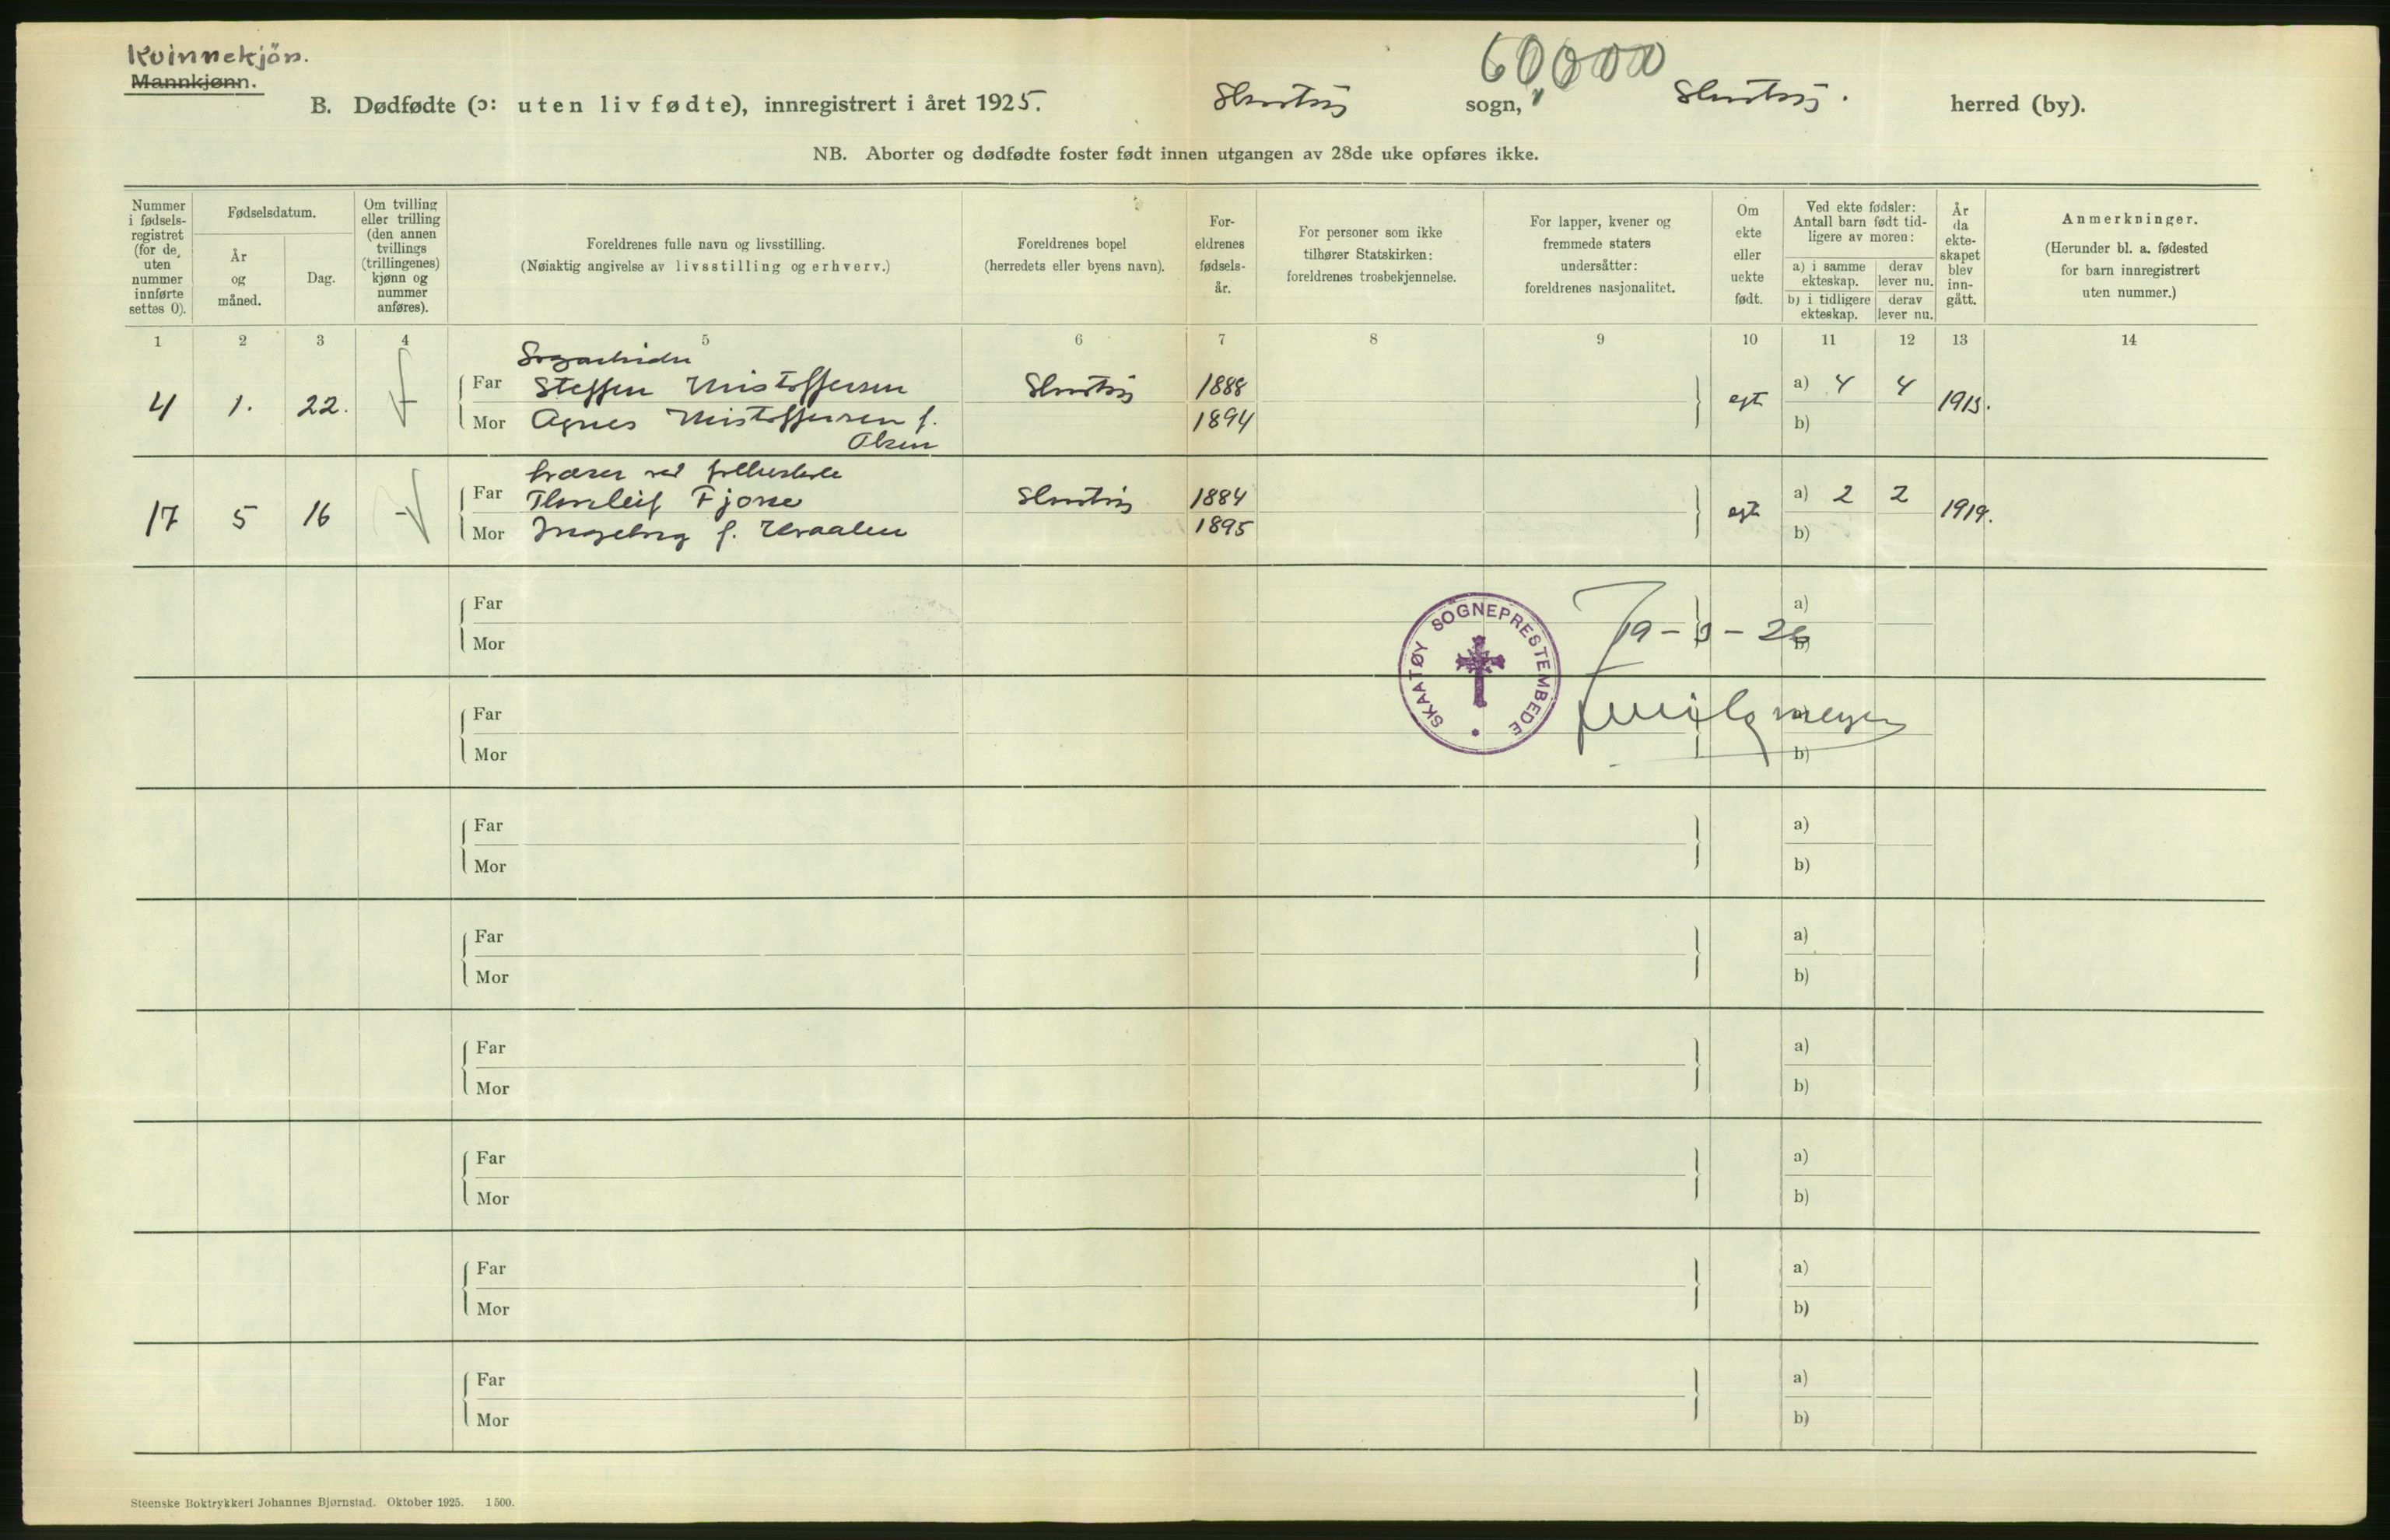 Kvinnekjön.
Mannkjønn.
60000
B. Dødfødte (ɔ: uten liv fødte), innregistrert i året 1925. Skaatøy sogn, Skaatøy. herred (by).
NB. Aborter og dødfødte foster født innen utgangen av 28de uke opføres ikke.
Nummer i fødsels-registret (for de uten nummer innførte settes 0).
Fødselsdatum.
År og måned.
Dag.
Om tvilling eller trilling (den annen tvillings (trillingenes) kjønn og nummer anføres).
Foreldrenes fulle navn og livsstilling.
(Nøiaktig angivelse av livsstilling og erhverv.)
Foreldrenes bopel
(herredets eller byens navn).
For-eldrenes fødsels-år.
For personer som ikke tilhører Statskirken: foreldrenes trosbekjennelse.
For lapper, kvener og fremmede staters undersåtter: foreldrenes nasjonalitet.
Om ekte eller uekte født.
Ved ekte fødsler: Antall barn født tid-ligere av moren:
a) i samme ekteskap.
derav lever nu.
b) i tidligere ekteskap.
derav lever nu.
År da ekte-skapet blev inn-gått.
Anmerkninger.
(Herunder bl. a. fødested for barn innregistrert uten nummer.)
1 2 3 4 5 6 7 8 9 10 11 12 13 14
4 1. 22.
Far Steffen Kristoffersen Skaatøy 1888 egt a) 4 4 1913.
Mor Agnes Kristoffersen f. 1894 b)
Olsen
17 5 16
Far Thorleif Fjorse Skaatøy 1884 egt a) 2 2 1919.
Mor Ingeborg f. Kraalen 1895 b)
Far a)
Mor b)
SKAATØY SOGNEPRESTEMBEDE
Far
Mor b)
Far a)
Mor b)
Far a)
Mor b)
Far a)
Mor b)
Far a)
Mor b)
Far a)
Mor b)
Far a)
Mor b)
Steenske Boktrykkeri Johannes Bjørnstad. Oktober 1925. 1 500.